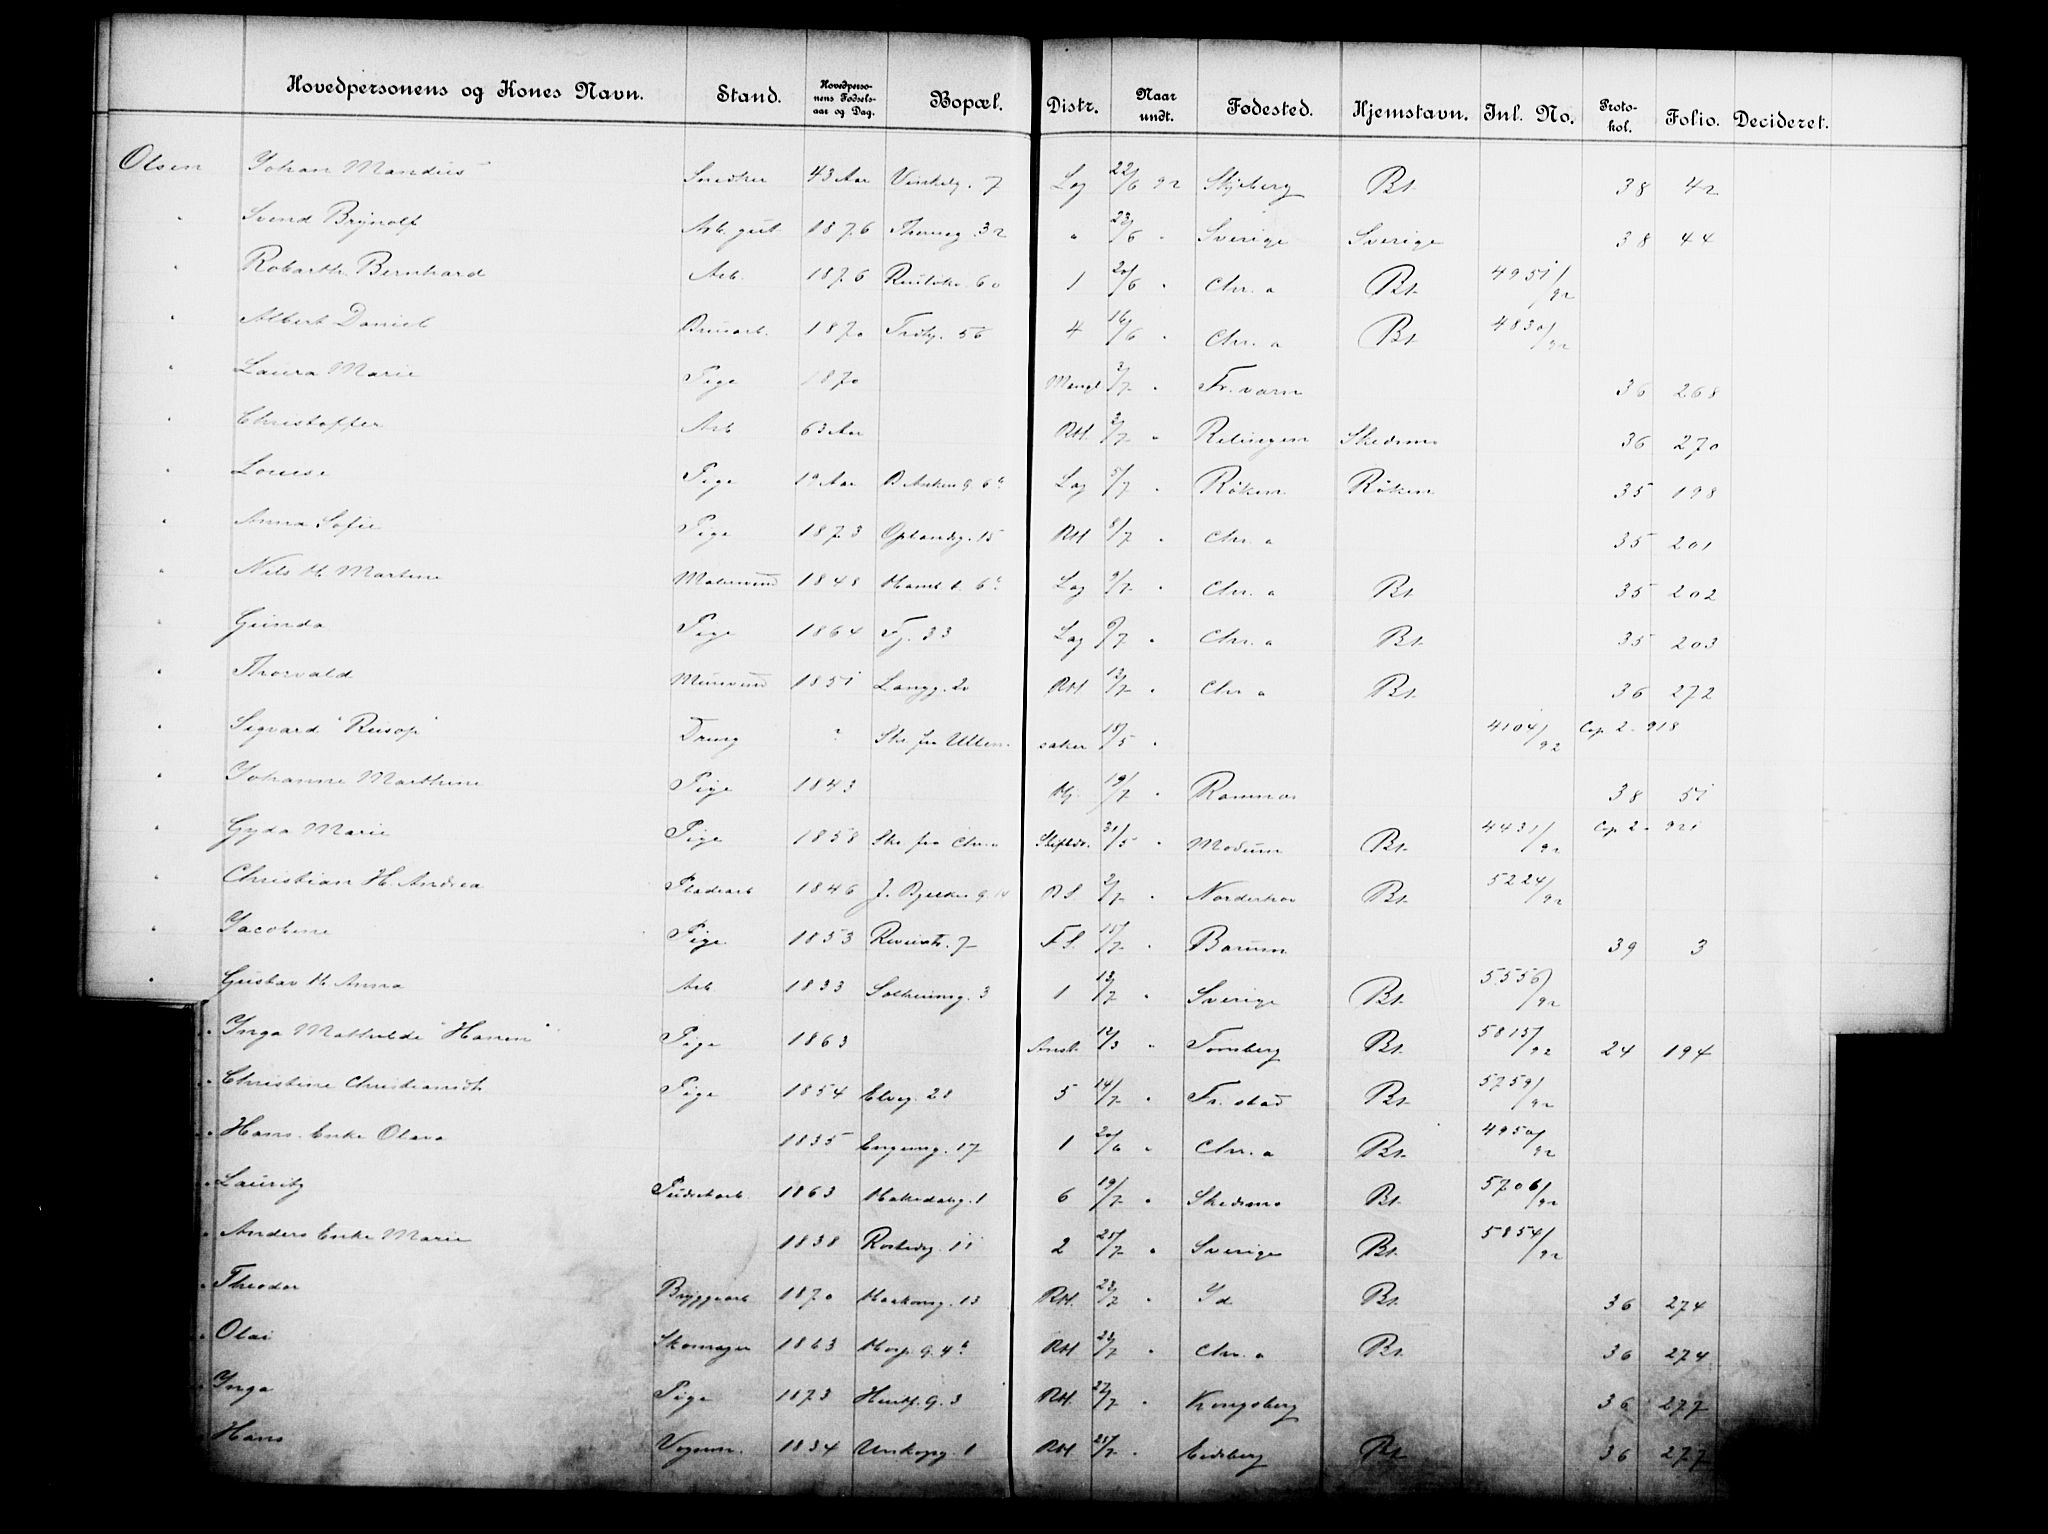 Hovedpersonens og Kones Navn. Stand. Hovedperso-nens Fødsels-aar og Dag. Bopæl. Distr. Naar undt. Fødested. Hjemstavn. Inl. No. Proto-kol. Folio. Decideret.
Olsen Johan Mandius Snedker 43 Aar Vinkelg. 7 Lag 22/6 92 Skjeberg Bt. 38 42
" Svend Brynolf Arb. gut 1876 32 " 23/6 " Sverige Sverige 38 44
" Robarth Bernhard Arb. 1876 60 1 20/6 " Chr.a Bt. 4951/92
" Albert Daniel 1870 56 4 16/6 " Chr.a Bt. 4830/92
" Laura Marie Pige 1870 Mangl 2/7 " Fr.værn 36 268
" Christoffer Arb 63 Aar RH. 2/7 " Relingen Skedsmo 36 270
" Louise Pige 19 Aar Lag 5/7 " Röken Röken 35 198
" Anna Sofie Pige 1873 Oplandsg. 15 RH 8/7 " Chr.a 35 201
" Nils H. Martine Malersvend 1848 Lag 9/7 " Chr.a Bt. 35 202
" Gunda Pige 1864 33 Lag 9/7 " Chr.a Bt. 35 203
" Thorvald Mursvend 1851 Langg. 20 RH 12/7 " Chr.a Bt. 36 272
" Sigvard "Reisop" Dreng ? Skr. fra Ullen-saker 18/5 " 4104/92 Cop. 2 - 918
" Johanne Marthine Pige 1843 Hj. 19/7 " Ramnæs 38 51
" Gyda Marie Pige 1858 Skr. fra Chr.a Stiftsdir. 31/5 " Modum Bt. 4431/92 Cop. 2 - 921
" Christian H. Andrea 1846 J. Bjelkes G. 14 RS. 2/7 " Norderhov Bt. 5224/92
" Jacobine Pige 1853 Revierstr. 7 FS. 15/7 " Barum 39 3
" Gustav H. Anna Arb. 1833 Solheimsg. 3 1 13/7 " Sverige Bt. 5556/92
" Inga Mathilde "Hansen" Pige 1863 Anst. 12/3 " Tonsberg Bt. 5815/92 24 194
" Christine Christiansdt. Pige 1854 Elveg. 28 5 14/7 " Fr.stad Bt. 5759/92
" Hans. Enke Olava 1835 Engensg. 17 1 20/6 " Chr.a Bt. 4950/92
" Lauritz Pudsekarb 1863 Hakedalsg. 1 6 19/7 " Skedsmo Bt. 5706/92
" Anders Enke Marie 1838 Rostedsg. 11 2 25/7 " Sverige Bt. 5854/92
" Theodor Bryggearb 1870 Haakonsg. 13 RH. 23/7 " Id Bt. 36 274
" Olai Skomager 1863 RH 23/7 " Chr.a Bt. 36 274
" Inga Pige 1873 G. 3 RH. 22/7 " Kongsberg 36 277
" Hans Vognm. 1834 1 RH 25/7 " Eidsberg Bt. 36 277